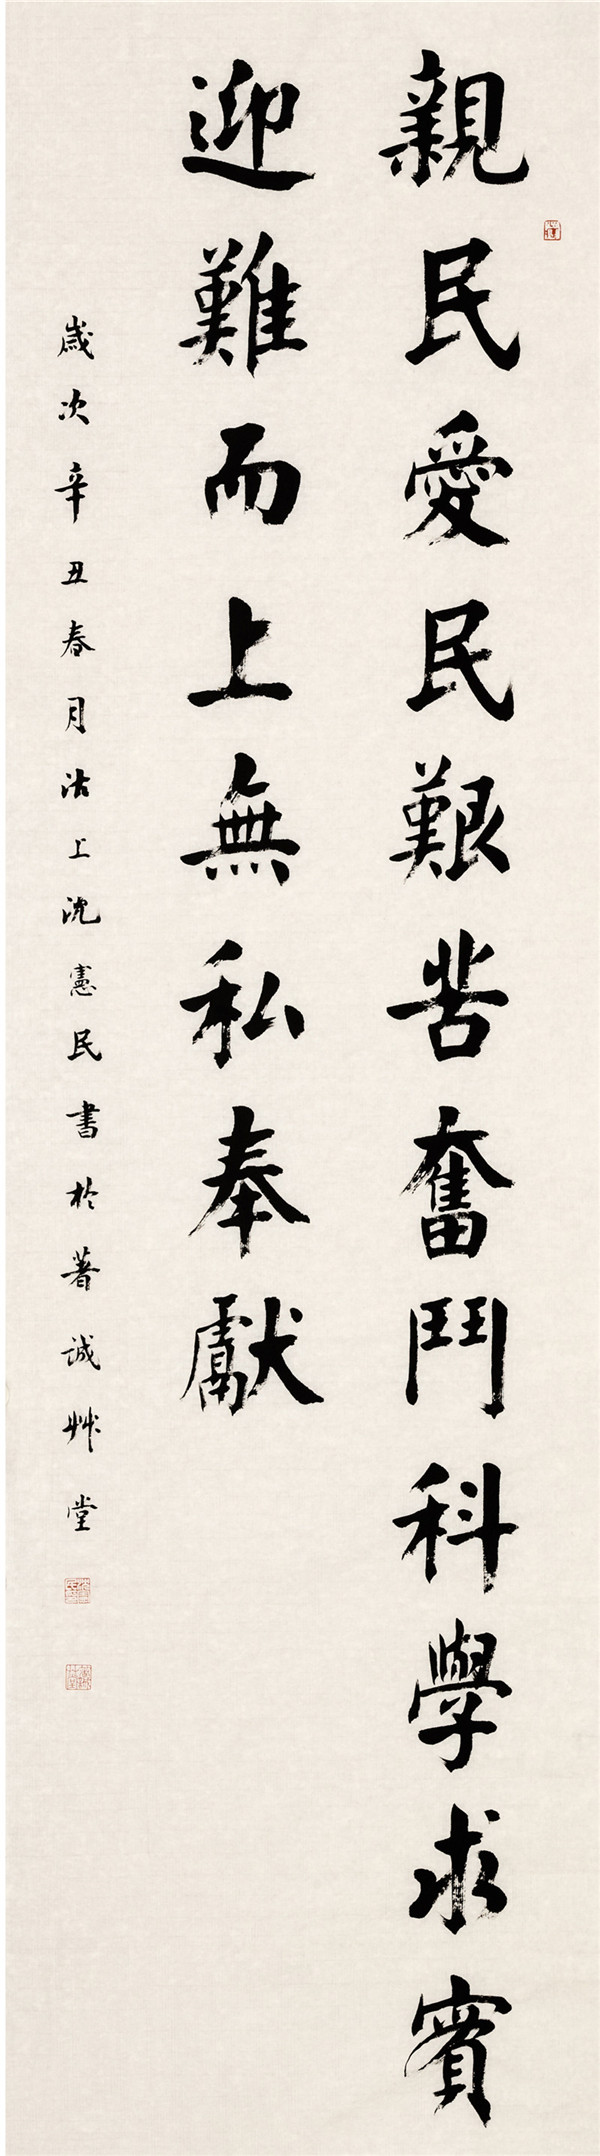 親民愛民艱苦奮鬥科學求實
迎難而上無私奉獻
歲次辛丑春月沽上沈憲民書於著誠艸堂